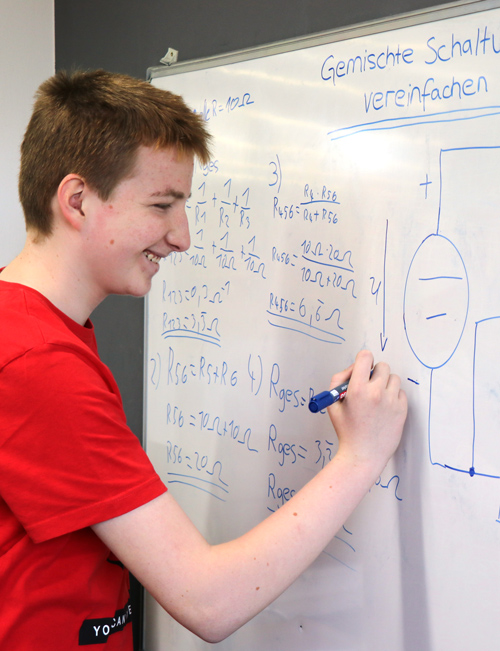 Gemischte Schaltu
vereinfachen
R=10Ω
ges
1/R1 + 1/R2 + 1/R3
1/10Ω + 1/10Ω + 1/10Ω
R123=0,3Ω⁻¹
R123=3,3̅Ω
2) R56=R5+R6
R56=10Ω+10Ω
R56=20Ω
3)
R456= R4·R56/R4+R56
R456= 10Ω·20Ω/10Ω+20Ω
R456=6,6̅Ω
4) Rges=
Rges=3,3̅
Rges
+
U
-